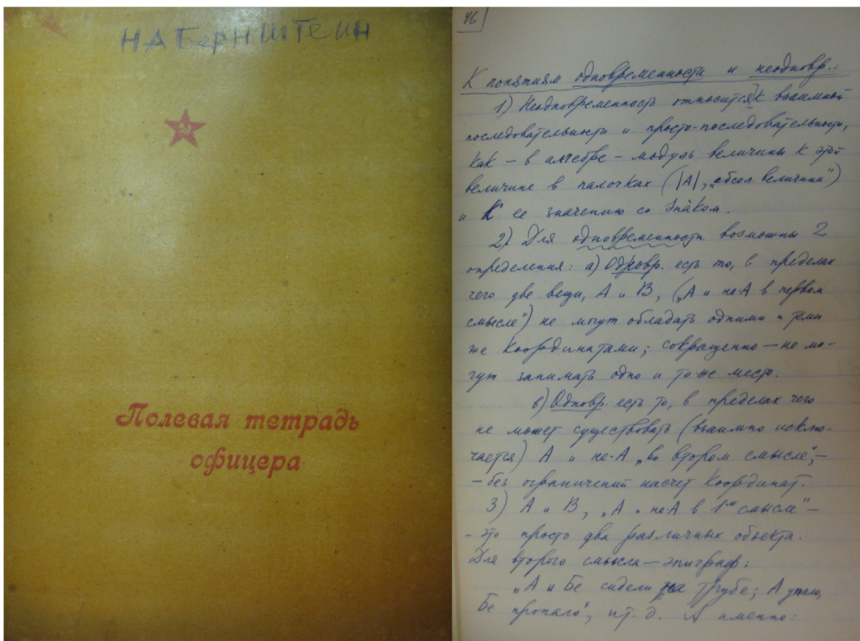 НАБернштейн
Полевая тетрадь
офицера
46
К понятиям одновременности и неодновр.:
1) Неодновременность относится к взаимной
последовательности и просто-последовательности,
как – в алгебре – модуль величины к этой
величине в палочках (|А|, „абсол. величина")
и к ее значению со знаком.
2) Для одновременности возможны 2
определения: а) Одновр. есть то, в пределах
чего две вещи, А и В, („А и не-А в первом
смысле") не могут обладать одними и теми
же координатами; сокращенно – не мо-
гут занимать одно и то же место.
в) Одновр. есть то, в пределах чего
не может существовать (взаимно исклю-
чается) А и не-А „во втором смысле", –
– без ограничений насчет координат.
3) А и В, „А и не-А в 1ом смысле" –
– это просто два различных объекта.
Для второго смысла – эпиграф:
„А и Бе сидели на трубе; А упало,
Бе пропало", и т. д. А именно: